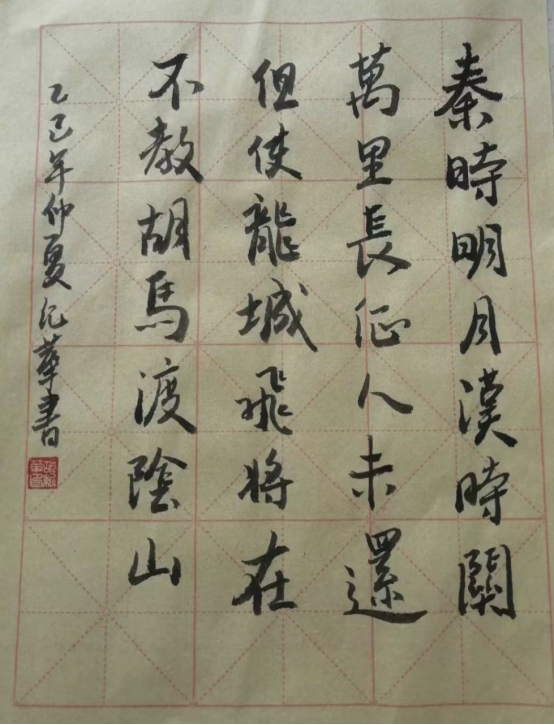 秦時明月漢時關
萬里長征人未還
但使龍城飛将在
不教胡馬渡陰山
乙巳年仲夏元華書